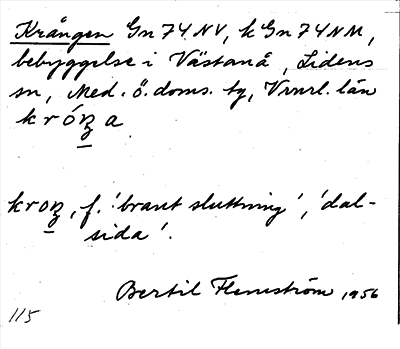 Krången Gn 74 NV, k Gn 74 NM,
bebyggelse i Västanå, Lidens
sn, Med. ö. doms. tg, Vrnrl. län
króꞑa
kroꞑ, f. 'brant sluttning', 'dal-
sida'.
Bertil Flemström 1956
115